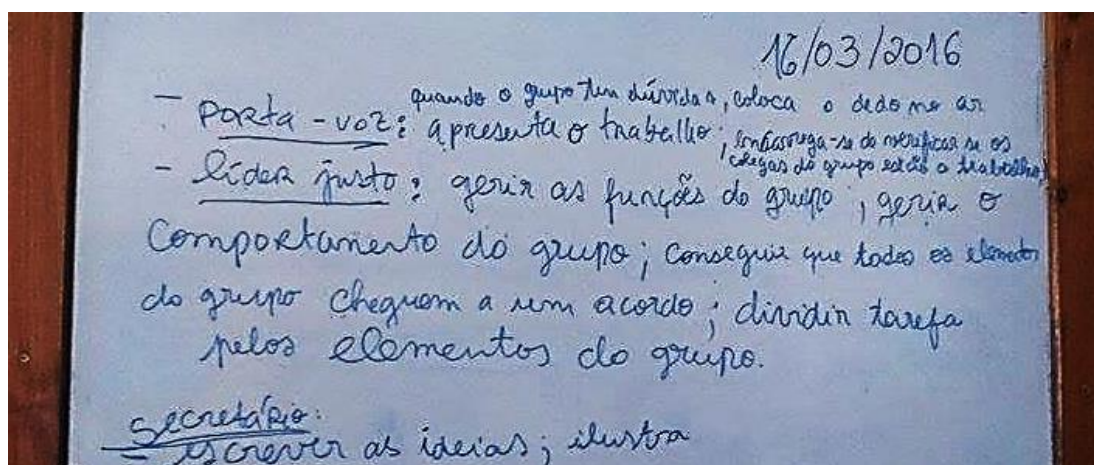 16/03/2016
quando o grupo tem dúvidas, coloca o dedo no ar
- Porta-voz: apresenta o trabalho; encarrega-se de verificar se os
colegas do grupo estão a trabalhar;
- Líder justo: gerir as funções do grupo; gerir o
comportamento do grupo; conseguir que todos os elementos
do grupo cheguem a um acordo; dividir tarefa
pelos elementos do grupo.
Secretário:
- escrever as ideias; ilustra